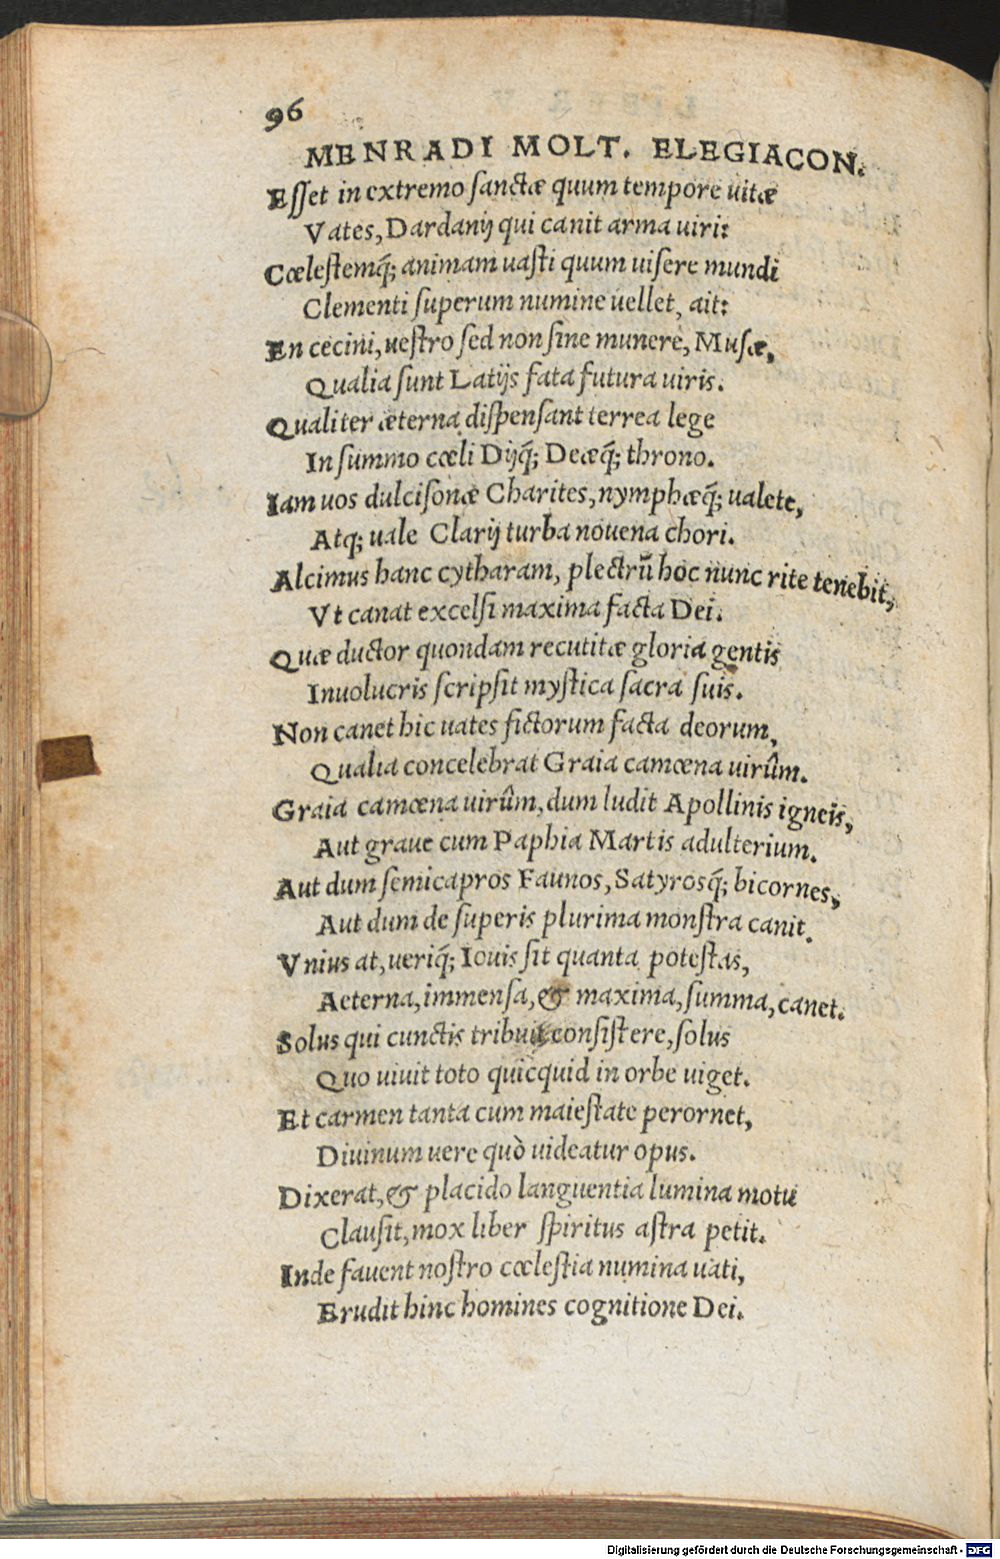 96
MENRADI MOLT. ELEGIACON.
Esset in extremo sanctæ quum tempore uitæ
Vates, Dardanij qui canit arma uiri:
Cœlestemq́; animam uasti quum uisere mundi
Clementi superum numine uellet, ait:
En cecini, uestro sed non sine munere, Musæ,
Qualia sunt Latijs fata futura uiris.
Qualiter æterna dispensant terrea lege
In summo cœli Dijq́; Deæq́; throno.
Iam uos dulcisonæ Charites, nymphæq́; ualete,
Atq; uale Clarij turba nouena chori.
Alcimus hanc cytharam, plectrū hoc nunc rite tenebit,
Vt canat excelsi maxima facta Dei.
Quæ ductor quondam recutitæ gloria gentis
Inuolucris scripsit mystica sacra suis.
Non canet hic uates fictorum facta deorum,
Qualia concelebrat Graia camœna uirûm.
Graia camœna uirûm, dum ludit Apollinis igneis,
Aut graue cum Paphia Martis adulterium.
Aut dum semicapros Faunos, Satyrosq́; bicornes,
Aut dum de superis plurima monstra canit.
Vnius at, ueriq́; Iouis sit quanta potestas,
Aeterna, immensa, & maxima, summa, canet.
Solus qui cunctis tribuit consistere, solus
Quo uiuit toto quicquid in orbe uiget.
Et carmen tanta cum maiestate perornet,
Diuinum uere quò uideatur opus.
Dixerat, & placido languentia lumina motu
Clausit, mox liber spiritus astra petit.
Inde fauent nostro cœlestia numina uati,
Erudit hinc homines cognitione Dei.
Digitalisierung gefördert durch die Deutsche Forschungsgemeinschaft - DFG